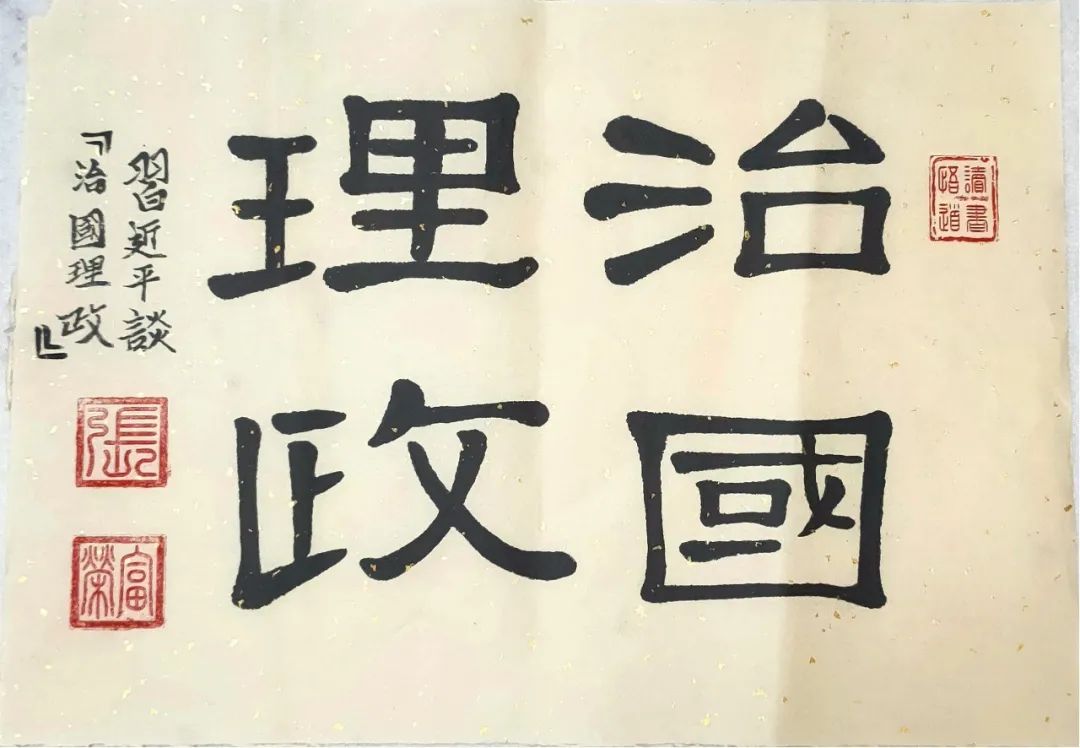 讀書
悟道
治國
理政
習近平談
『治國理政』
張
富榮